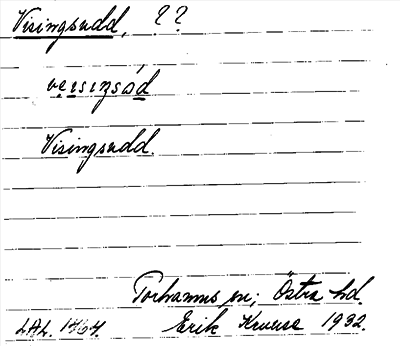 Visingsudd, ??
veısıŋsód
Visingsudd
Torhamns sn; Östra hd.
Erik Kruuse 1932.